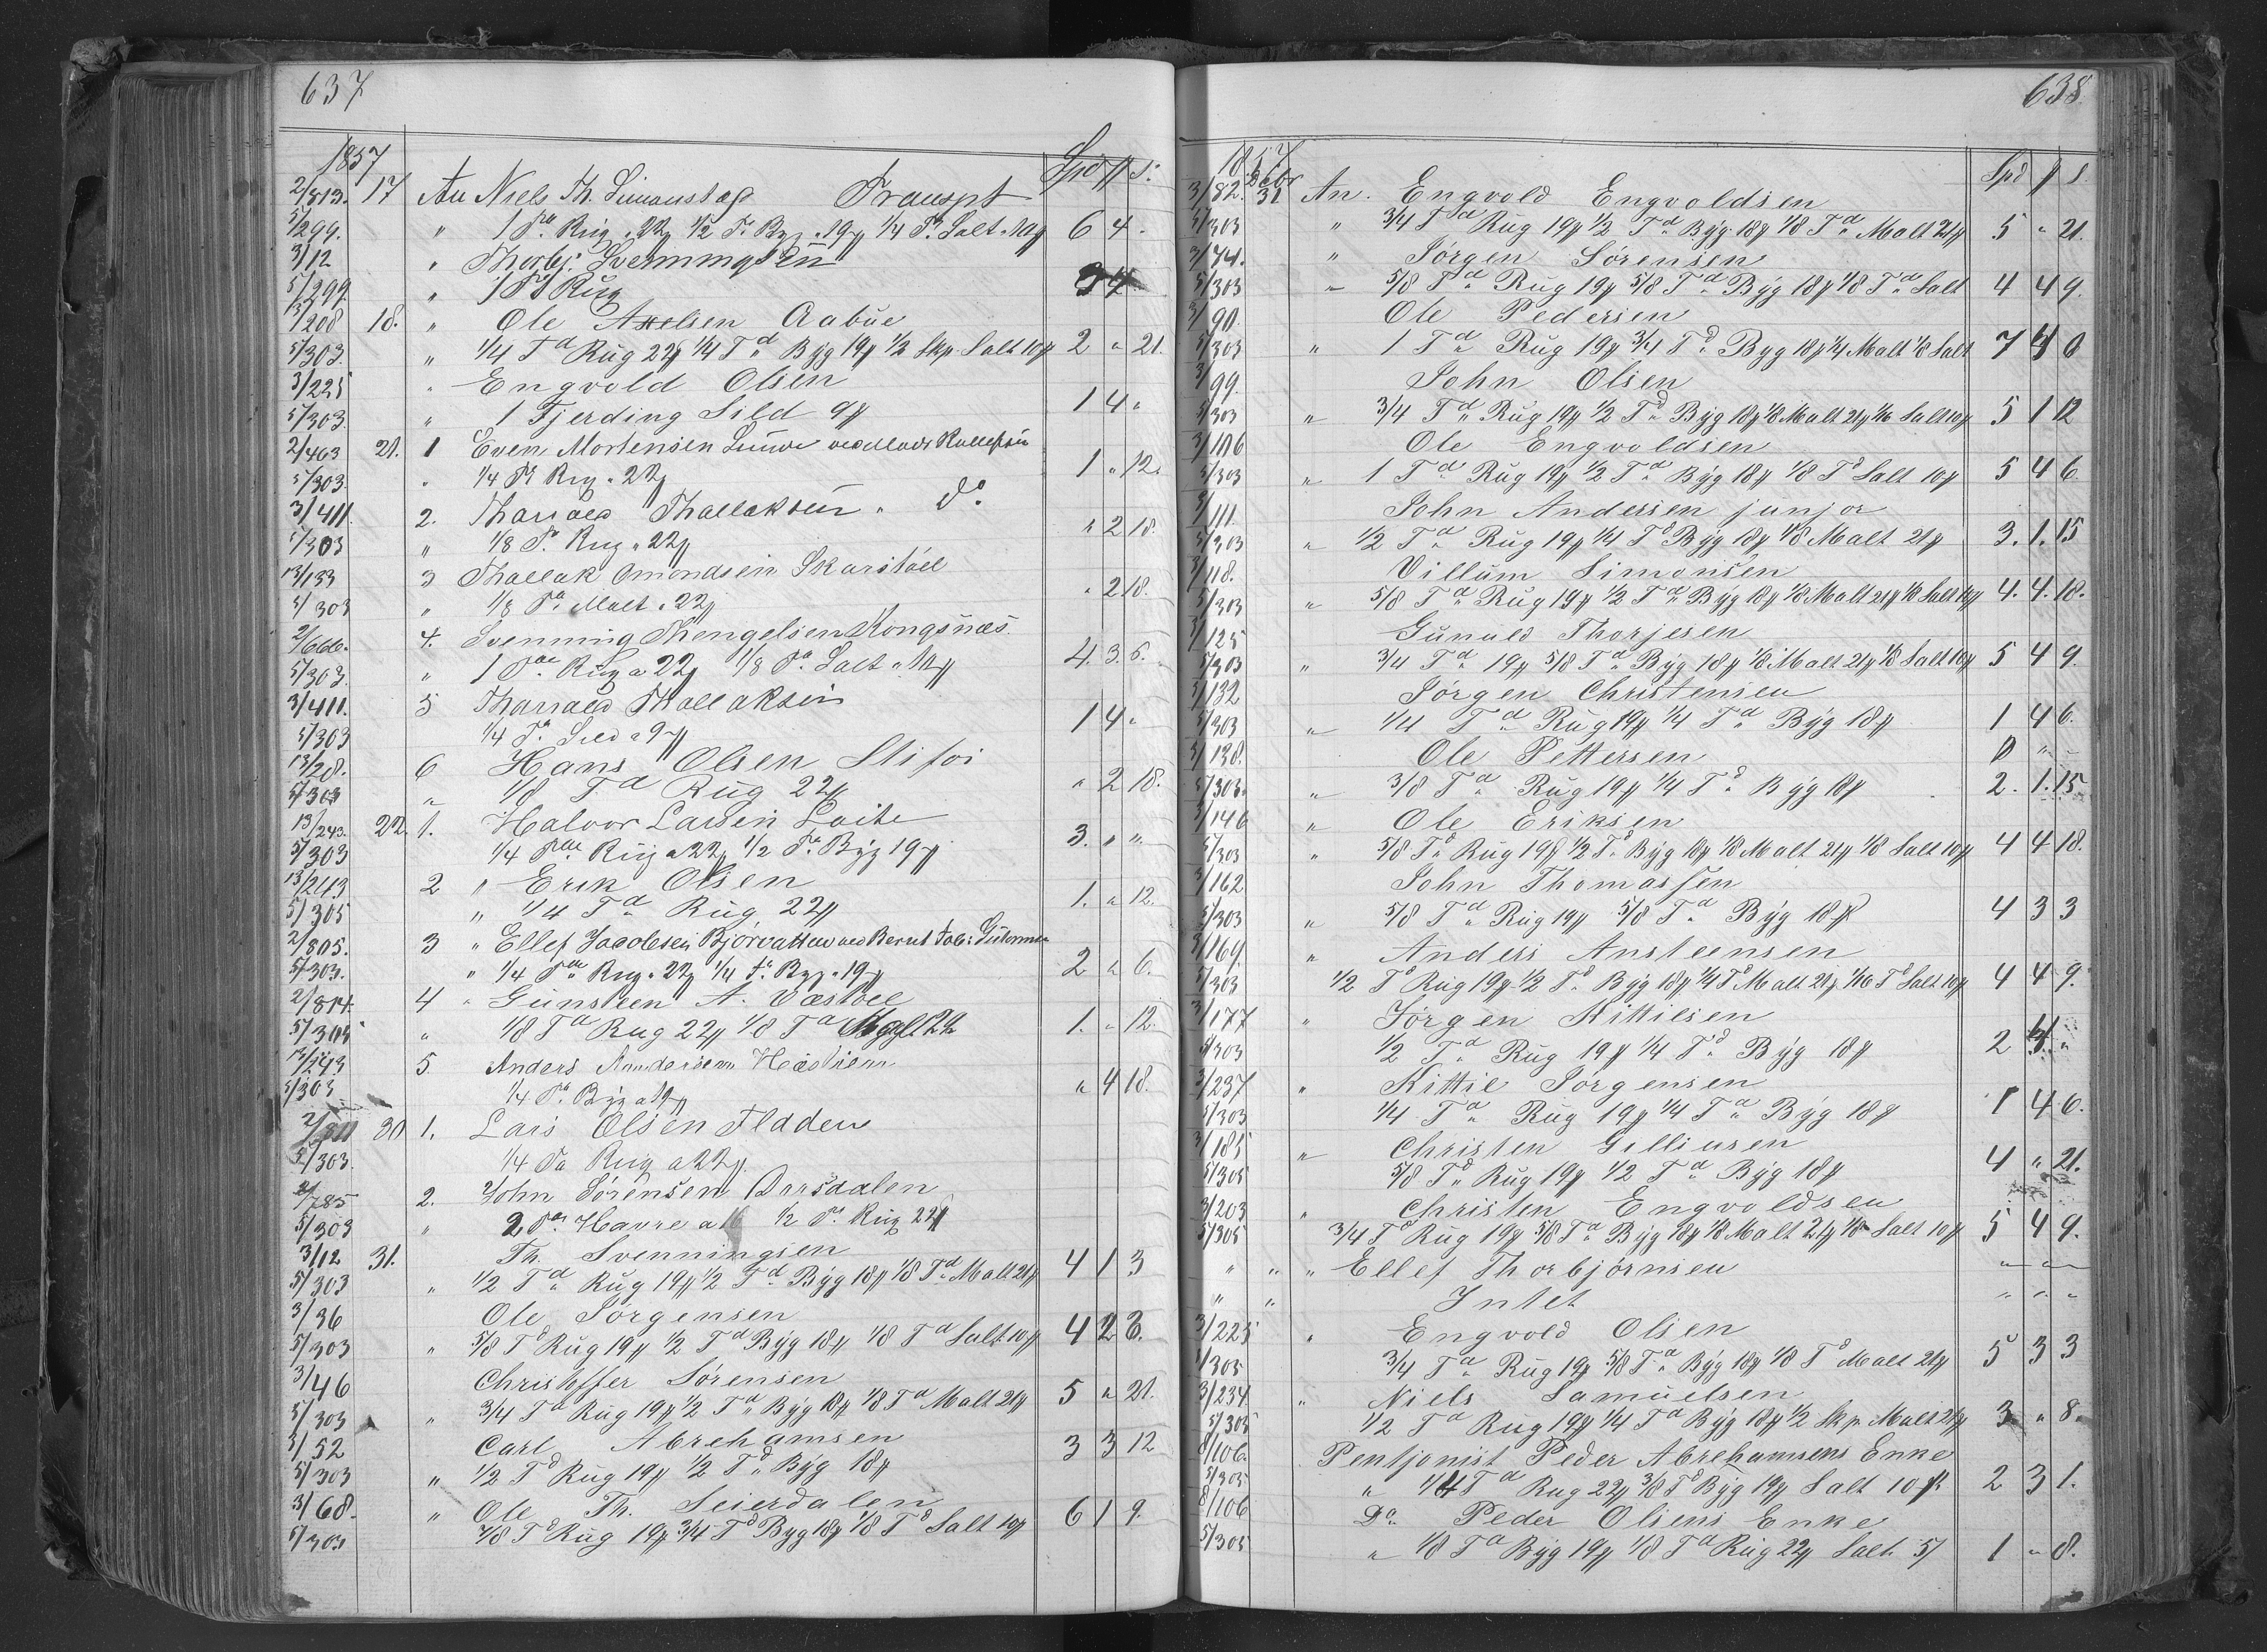 637
1857 Spd ℔ S:
2/813. 17 An Niels Th. Simonstap Transpt
5/299. " 1 Td Rug a 22 ℔ 1/2 Td Byg a 19 ℔ 1/4 Td Salt a 10 ℔ 6 4 "
3/12 " Thorbj: Svenningsen
5/299. " 1 Td Rug
13/208 18. " Ole Axelsen Aabue
5/303. " 1/4 Td Rug 22 ℔ 1/4 Td Byg 19 ℔ 1/2 Skp Salt 10 ℔ 2 " 21.
3/225 " Engvold Olsen
5/303. " 1 Fjerding Sild 9 ℔ 1 4 "
2/463 21. 1 Even Mortensen
5/303. " 1/4 Td Rug a 22 ℔ 1 " 12.
3/411. 2. Tharald Thallaksen " do
5/303 " 1/8 Td Rug a 22 ℔ " 2 18.
13/133 3 Thallak Omondsen Skaristøl
5/303 " 1/8 Td Malt a 22 ℔ " 2 18.
2/666. 4. Svenning Thengelsen Kongsnæs.
5/303. " 1 Tde Rug a 22 ℔ 1/8 Td Salt a 10 ℔ 4. 3. 6.
3/411. 5 Tharald Thallaksen
5/303 1/4 Td Sild a 9 ℔ 1 4 "
13/28. 6 Hans Olsen Stifoi
5/303 " 1/8 Td Rug 22 ℔ " 2 18.
13/243. 22. 1. Halvor Larsen Loite
5/303 1/4 Tde Rug a 22 ℔ 1/2 Td Byg 19 ℔ 3. " "
13/243 2 " Erik Olsen
5/305 " 1/4 Td Rug 22 ℔ 1. " 12.
2/805. 3 " Ellef Jacobsen Bjorvatten ved Bernt Jab:
5/303. " 1/4 Tde Rug a 22 ℔ 1/4 Td Byg a 19 ℔ 2 " 6.
2/814. 4 " Gunsteen A. Væstøl
5/305 " 1/8 Td Rug 22 ℔ 1/8 Td 1. " 12.
13/243 5. Anders Aanderssen Hæstiem
5/303. 1/4 Td Byg a 19 ℔ " 4 18.
30 1. Lars Olsen Fladen
5/303. 1/4 Td Rug a 22 ℔.
2/785 2. John Sørensen Darsdalen
5/303 " 2 Tdr Havre a 16 1/2 Td Rug 22 ℔
3/12 31. Th. Svenningsen
5/303 " 1/2 Td Rug 19 ℔ 1/2 Td Byg 18 ℔ 1/8 Td Malt 21 ℔ 4 1 3
3/36 Ole Jørgensen
5/303 " 5/8 Td Rug 19 ℔ 1/2 Td Byg 18 ℔ 1/8 Td Salt 10 ℔ 4 2 3.
3/46 Christoffer Sørensen
5/303 " 3/4 Td Rug 19 ℔ 1/2 Td Byg 18 ℔ 1/8 Td Malt 21 ℔ 5 " 21.
3/52 Carl Abrehamsen
5/303 " 1/2 Td Rug 19 ℔ 1/2 Td Byg 18 ℔ 3 3 12
3/68. " Ole Th. Seierdalen
5/303 7/8 Td Rug 19 ℔ 3/4 Td Byg 18 ℔ 1/8 Td Salt 10 ℔ 6 1 9.
638.
1857 Spd ℔ S.
3/82. Debr 31 An. Engvold Engvoldsen
5/303 " 3/4 Td Rug 19 ℔ 1/2 Td Byg 18 ℔ 1/8 Td Malt 21 ℔ 5 " 21.
3/74. " Jørgen Sørensen
5/303 " 5/8 Td Rug 19 ℔ 5/8 Td Byg 18 ℔ 1/8 Td Salt 4 4 9.
3/90. Ole Pedersen
5/303 " 1 Td Rug 19 ℔ 3/4 Td Byg 18 ℔ 1/4 Malt 1/8 Salt 7 4 0
3/99. John Olsen
5/303 " 3/4 Td Rug 19 ℔ 1/2 Td Byg 18 ℔ 1/8 Malt 21 ℔ 1/16 Salt 10 ℔ 5 1 12
3/106 Ole Engvoldsen
5/303 " 1 Td Rug 19 ℔ 1/2 Td Byg 18 ℔ 1/8 Td Salt 10 ℔ 5 4 6.
3/111. John Andersen junjor
5/303 " 1/2 Td Rug 19 ℔ 1/4 Td Byg 18 ℔ 1/8 Malt 21 ℔ 3. 1. 15
3/118. Villum Simonsen
5/303 " 5/8 Td Rug 19 ℔ 1/2 Td Byg 18 ℔ 1/8 Malt 21 ℔ 1/8 Salt 10 ℔ 4. 4. 18.
3/125 Gunuld Thorjesen
5/303 " 3/4 Td 19 ℔ 5/8 Td Byg 18 ℔ 1/8 Malt 21 ℔ 1/8 Salt 10 ℔ 5 4 9.
3/132 Jørgen Christensen
5/303 " 1/4 Td Rug 19 ℔ 1/4 Td Byg 18 ℔ 1 4 6.
3/138. Ole Pettersen 0 " "
5/303. " 3/8 Td Rug 19 ℔ 1/4 Td Byg 18 ℔ 2. 1. 15.
3/146 " Ole Eriksen
5/303 " 5/8 Td Rug 19 ℔ 1/2 Td Byg 18 ℔ 1/8 Malt 21 ℔ 1/8 Salt 10 ℔ 4 4 18.
3/162 John Thomassen
5/303 " 5/8 Td Rug 19 ℔ 5/8 Td Byg 18 ℔ 4 3 3
3/169. " Anders Ansteensen
5/303 1/2 Td Rug 19 ℔ 1/2 Td Byg 18 ℔ 1/4 Td Malt 21 ℔ 1/16 Td Salt 10 ℔ 4 4 9.
3/177 " Jørgen Kittilsen
5/303 1/2 Td Rug 19 ℔ 1/4 Td Byg 18 ℔ 2 4. "
3/237 " Kittie Jørgensen
5/303 1/4 Td Rug 19 ℔ 1/4 Td Byg 18 ℔ 1 4 6.
3/185 " Christen Gelliusen
5/305 5/8 Td Rug 19 ℔ 1/2 Td Byg 18 ℔ 4 " 21.
3/203 " Christen Engvoldsen
5/305 3/4 Td Rug 19 ℔ 5/8 Td Byg 18 ℔ 1/8 Malt 21 ℔ 1/8 Salt 10 ℔ 5 4 9.
" " " Ellef Thorbjørnsen " " "
" " Intet " " "
3/225 " Engvold Olsen
5/305 3/4 Td Rug 19 ℔ 5/8 Td Byg 18 ℔ 1/8 Td Malt 21 ℔ 5 3 3
3/234 " Niels Samuelsen
5/305 1/2 Td Rug 19 ℔ 1/4 Td Byg 18 ℔ 1/2 Skp Malt 21 ℔ 3 " 8.
8/106. Pentjonist Peder Abrehamsens Enke
5/305 " 1/4 Td Rug 22 ℔ 3/8 Td Byg 19 ℔ Salt 10 ℔ 2 3 1.
8/106 Do Peder Olsens Enke
5/305 " 1/8 Td Byg 19 ℔ 1/8 Td Rug 22 ℔ Salt 5/ 1 " 8.